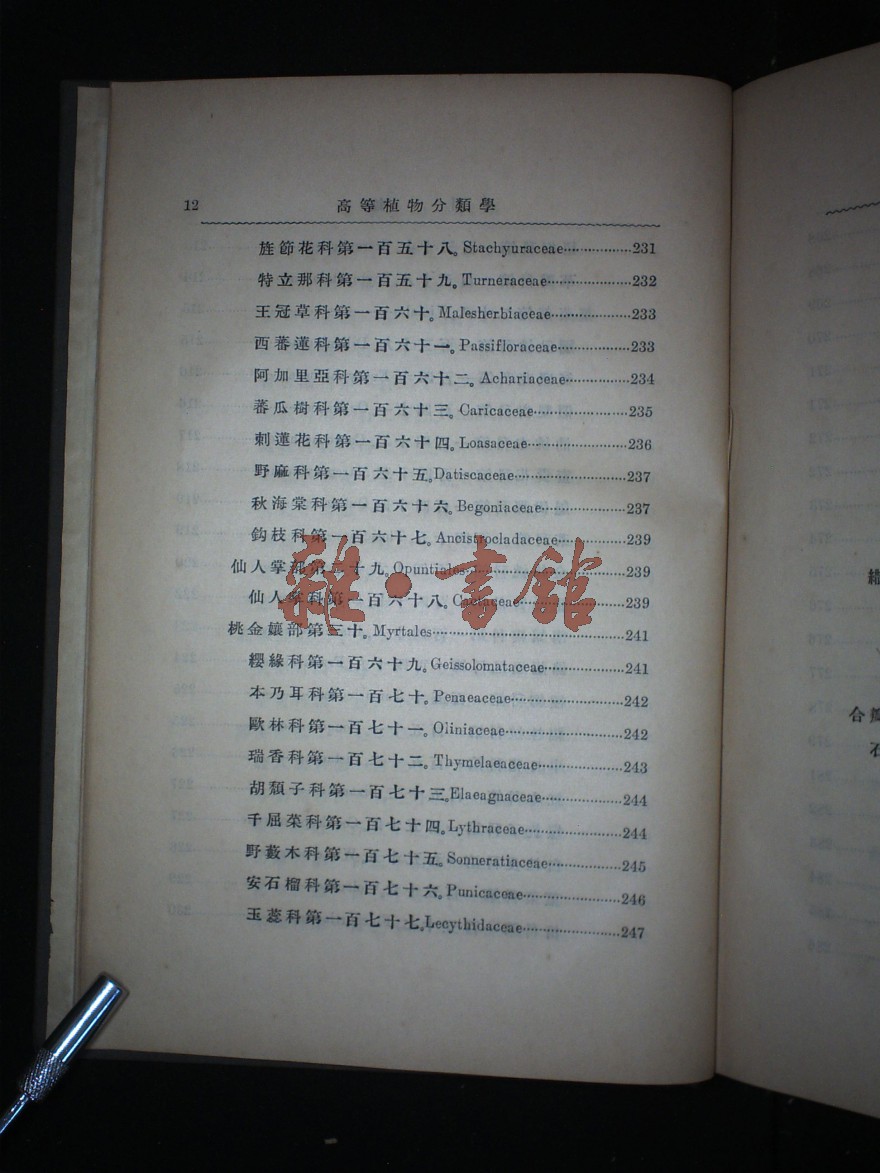 12 高等植物分類學
旌節花科第一百五十八。Stachyuraceae………………231
特立那科第一百五十九。Turneraceae…………………232
王冠草科第一百六十。Malesherbiaceae………………233
西蕃蓮科第一百六十一。Passifloraceae………………233
阿加里亞科第一百六十二。Achariaceae………………234
蕃瓜樹科第一百六十三。Caricaceae……………………235
刺蓮花科第一百六十四。Loasaceae……………………236
野麻科第一百六十五。Datiscaceae……………………237
秋海棠科第一百六十六。Begoniaceae…………………237
鈎枝科第一百六十七。Ancistrocladaceae……………239
仙人掌部第二十九。Opuntiales…………………………239
仙人掌科第一百六十八。Cactaceae……………………239
桃金孃部第三十。Myrtales………………………………241
纓緣科第一百六十九。Geissolomataceae………………241
本乃耳科第一百七十。Penaeaceae………………………242
歐林科第一百七十一。Oliniaceae………………………242
瑞香科第一百七十二。Thymelaeaceae…………………243
胡頹子科第一百七十三。Elaeagnaceae…………………244
千屈菜科第一百七十四。Lythraceae……………………244
野藪木科第一百七十五。Sonneratiaceae………………245
安石榴科第一百七十六。Punicaceae……………………246
玉蕊科第一百七十七。Lecythidaceae…………………247
雜·書館
合
石